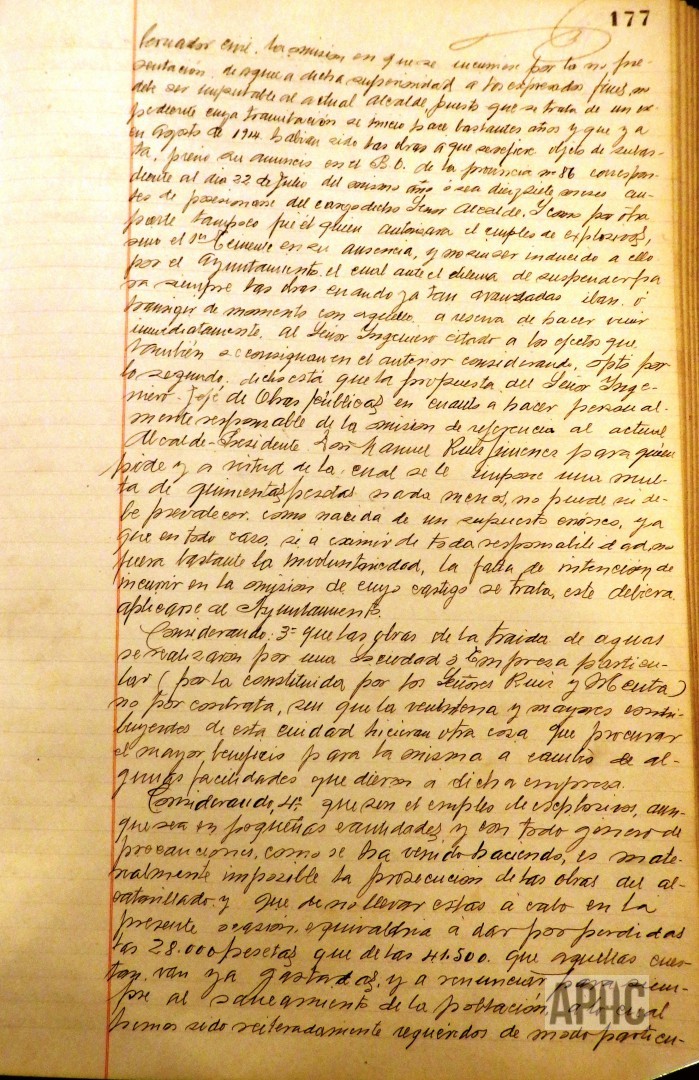 177
bernador civil. La omision en que se incurriera por la no pre-
sentación de aquel a dicha superioridad a los expresados fines no
debe ser imputable al actual Alcalde, puesto que se trata de un ex-
pediente cuya tramitación se inició hace bastantes años y que ya
en agosto de 1914 habian sido las obras a que se refiere objeto de subas-
ta, previo su anuncio en el B.O. de la provincia nº 86 correspon-
diente al dia 22 de Julio del mismo año ó sea diez y siete meses an-
tes de posesionarse del cargo dicho Señor Alcalde. Y como por otra
parte tampoco fué él quien autorizara el empleo de explosivos,
sino el 1er Teniente en su ausencia, y no sin ser inducido a ello
por el Ayuntamiento, el cual ante el dilema de suspender pa-
ra siempre las obras cuando ya tan avanzadas iban, ó
transigir de momento con aquello a reserva de hacer venir
inmediatamente al Señor Ingeniero citado a los efectos que
tambien se consignan en el anterior considerando, optó por
lo segundo, dicho está que la propuesta del Señor Inge-
niero-Jefe de Obras públicas en cuanto a hacer personal-
mente responsable de la omision de referencia al actual
Alcalde-Presidente Don Manuel Ruiz Jimenez para quien
pide y a virtud de la cual se le impone una mul-
ta de quinientas pesetas nada menos, no puede ni de-
be prevalecer, como nacida de un supuesto erróneo, ya
que en todo caso, si a eximir de toda responsabilidad, no
fuera bastante la involuntariedad, la falta de intención de
incurrir en la omision de cuyo castigo se trata, este debiera
aplicarse al Ayuntamiento.
Considerando: 3º que las obras de la traida de aguas
se realizaron por una Sociedad ó Empresa particu-
lar (por la constituida por los Señores Ruiz y Menta)
no por contrata, sin que la veintena y mayores contri-
buyentes de esta ciudad hicieran otra cosa que procurar
el mayor beneficio para la misma a cambio de al-
gunas facilidades que dieron a dicha empresa.
Considerando, 4º que sin el empleo de explosivos, aun-
que sea en pequeñas cantidades y con todo género de
precauciones, como se ha venido haciendo, es mate-
rialmente imposible la prosecución de las obras del al-
cantarillado, y que de no llevar estas a cabo en la
presente ocasión, equivaldria a dar por perdidas
las 28.000 pesetas que de las 41.500 que aquellas cues-
tan, van ya gastadas, y a renunciar para siem-
pre al saneamiento de la población, al cual
hemos sido reiteradamente requeridos de modo particu-
APHC